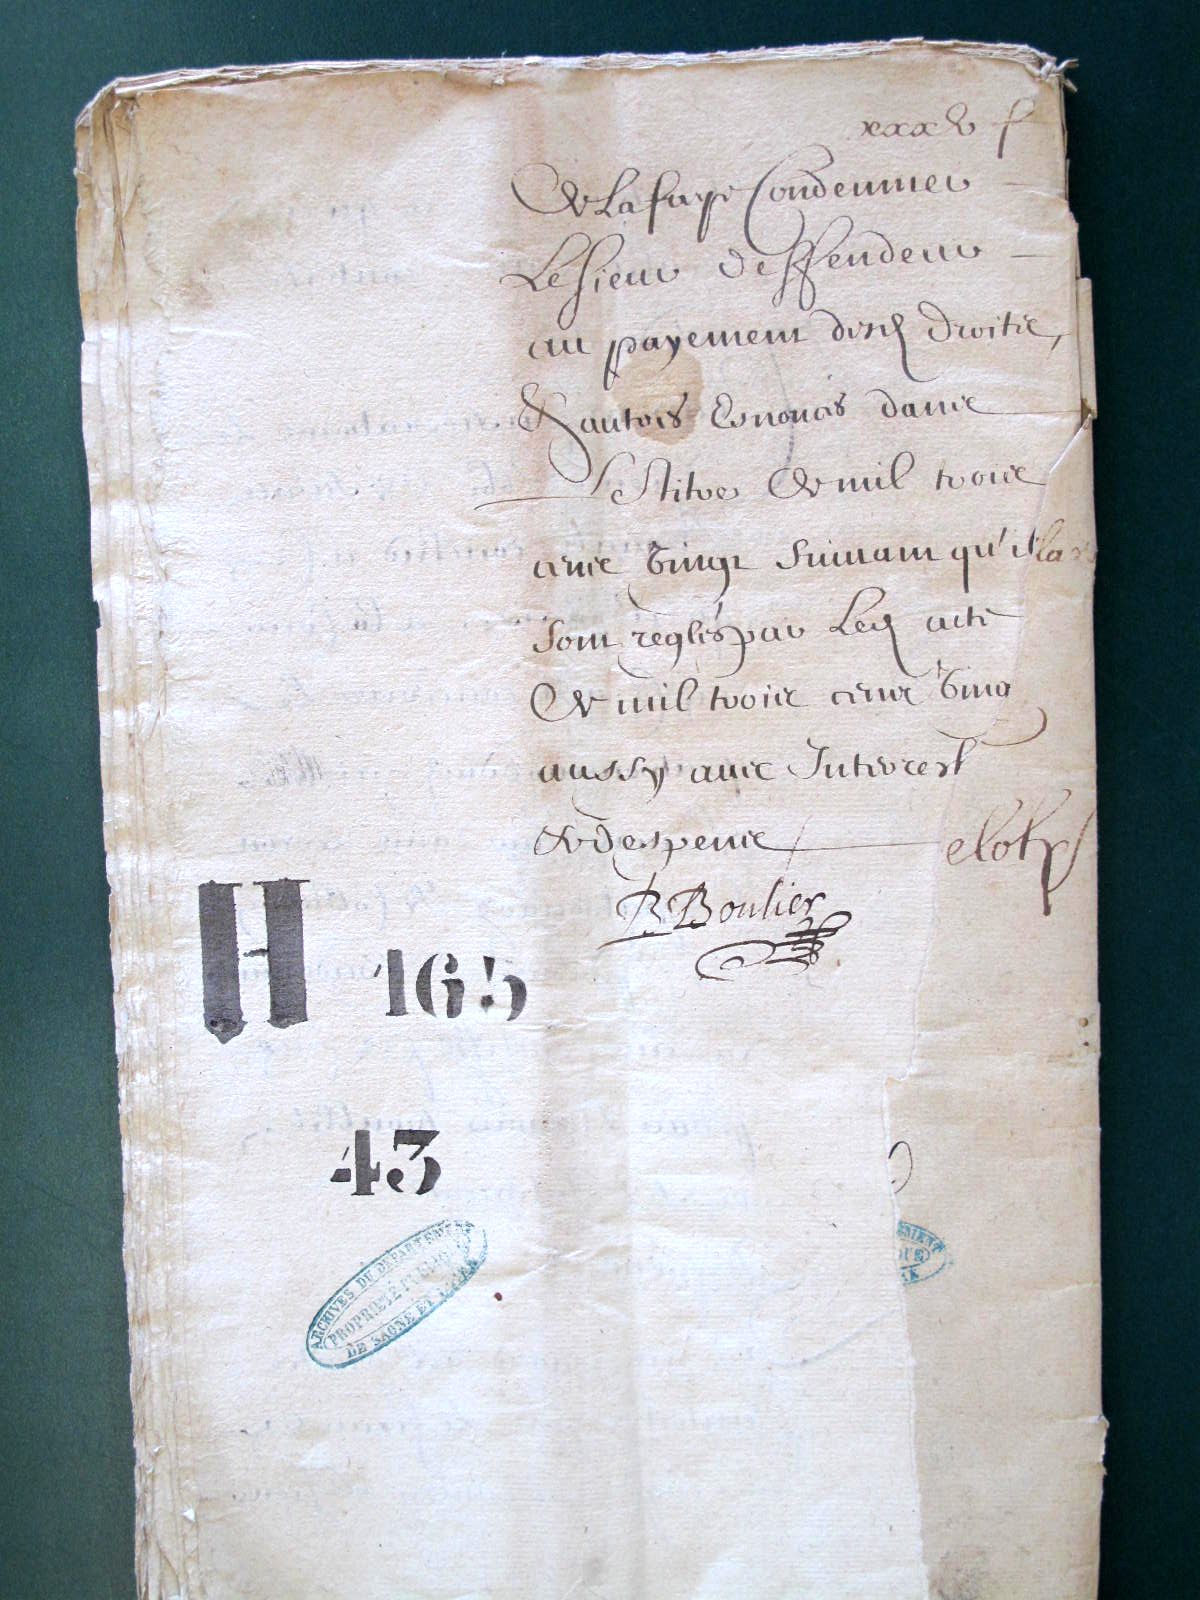 xxxv f
de Lafaye Condemner
Le sieur deffendeur
au payement desd droitz
Et autres Enoncés dans
Le tiltre de mil trois
cens vingt suivant qu'il
sont reglés par Led acte
de mil trois cens vingt
aussy avec Interest
et despens
B Boulier
H 165
43
ARCHIVES DU DEPARTEMENT
PROPRIÉTÉ PUBLIQUE
DE SAONE ET LOIRE